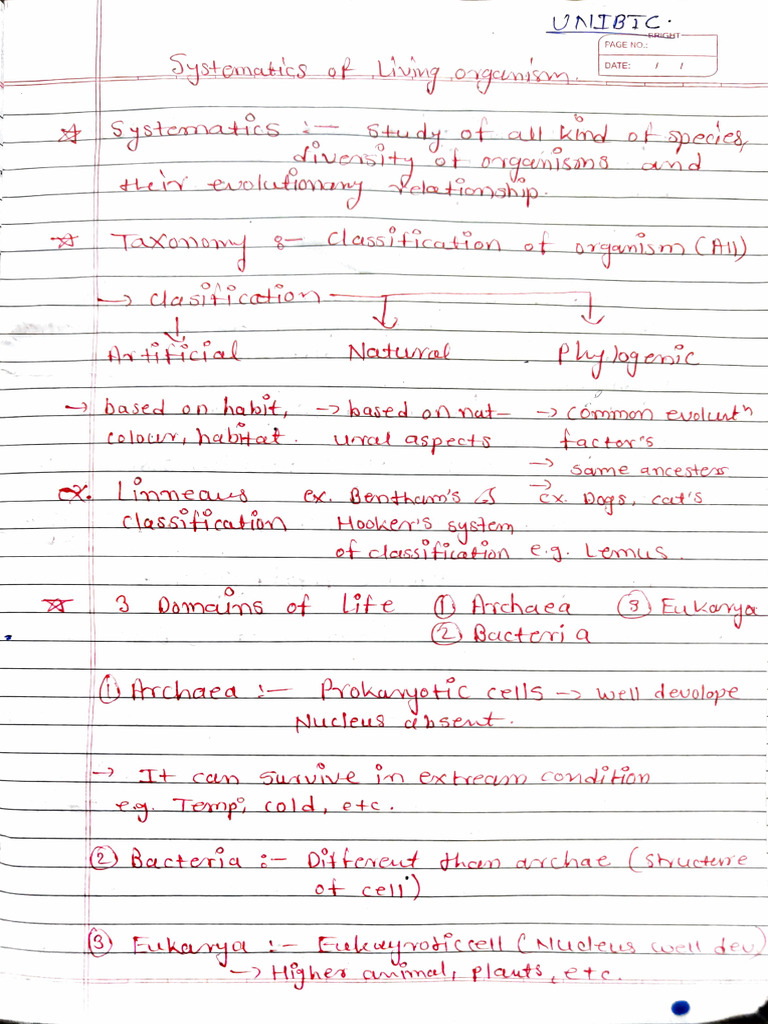 UNIBTC.
BRIGHT
PAGE NO.:
DATE: / /
Systematics of Living organism.
☆ Systematics :- Study of all kind of species,
diversity of organisms and
their evolutionary relationship.
☆ Taxonomy :- Classification of organism (All)
→ clasification
Artificial Natural Phylogenic
→ based on habit, → based on nat- → common evolutⁿ
colour, habitat. ural aspects factor's
→ same ancesters
ex. Linneaus ex. Bentham's & → ex. Dogs, cat's
classification Hooker's system
of classification e.g. Lemus.
☆ 3 Domains of Life ① Archaea ③ Eukarya
② Bacteria
① Archaea :- Prokaryotic cells → well devolope
Nucleus absent.
→ It can survive in extream condition
e.g. Temp, cold, etc.
② Bacteria :- Different than archae (structure
of cell)
③ Eukarya :- Eukayrotic cell (Nucleus well dev)
→ Higher animal, plants, etc.